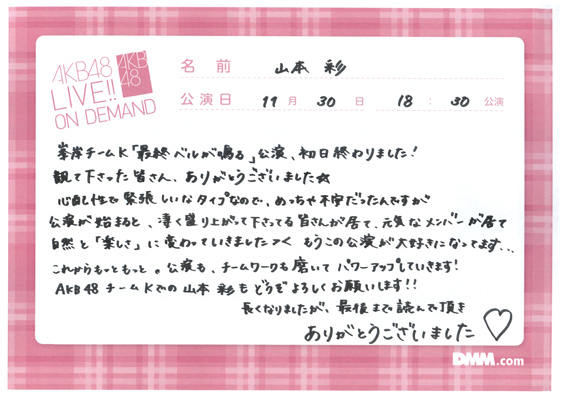 AKB48
LIVE!!
ON DEMAND
AKB
48
名前 山本 彩
公演日 11月 30日 18:30公演
峯岸チームK「最終ベルが鳴る」公演、初日終わりました!
観て下さった皆さん、ありがとうございました☆
心配性で緊張しいなタイプなので、めっちゃ不安だったんですが
公演が始まると、凄く盛り上がって下さってる皆さんが居て、元気なメンバーが居て
自然と「楽しさ」に変わっていきました もうこの公演が大好きになってます、、
これからもっともっと。公演も、チームワークも磨いてパワーアップしていきます!
AKB48チームKでの山本彩もどうぞよろしくお願いします!!
長くなりましたが、最後まで読んで頂き
ありがとうございました♡
DMM.com